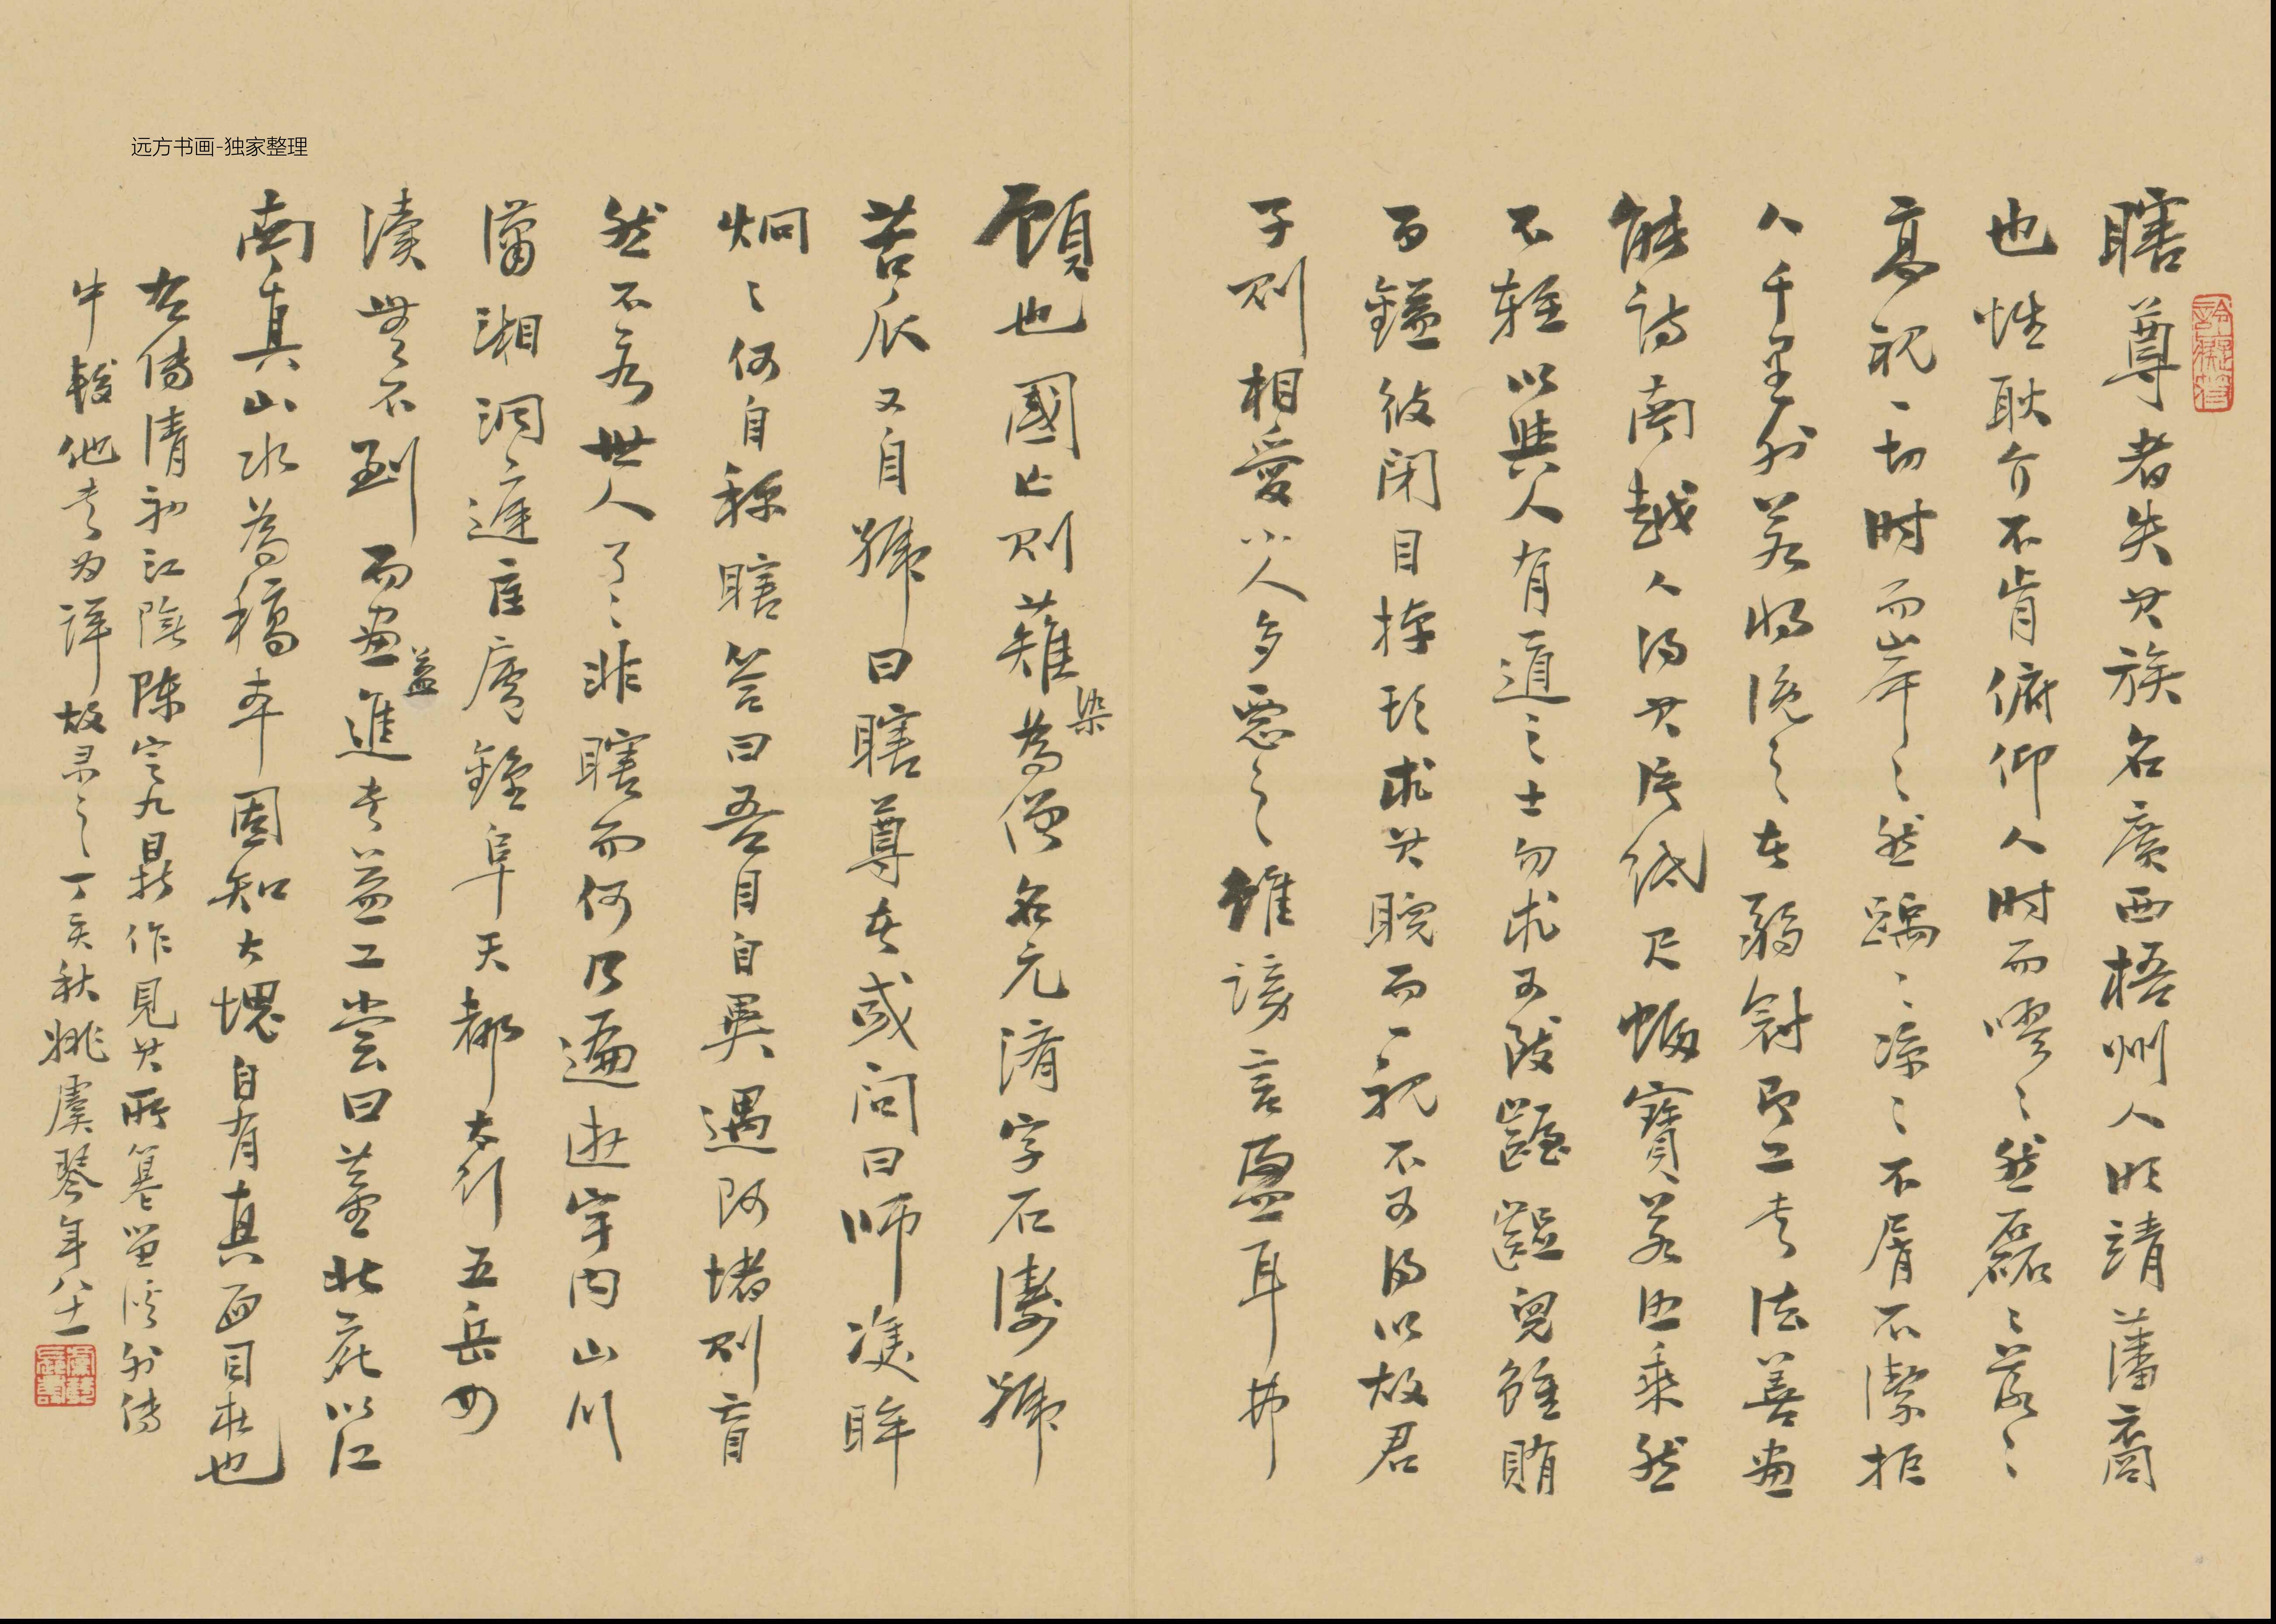 远方书画-独家整理
瞎尊者失其族名广西梧州人明靖藩裔
也性耿介不肯俯仰人时而嘐〻然磊〻落〻
高视一切时而岸〻然踽〻凉〻不屑不洁拒
人千里外若将浼之在弱龄即工书法善画
能诗南越人得其片纸尺幅宝若世乘然
不轻以与人有道之士勿求可致龌龊儿虽赂
百镒彼闭目掉头求其睨而一视不可得以故君
子则相爱小人多恶之虽谤言盈耳弗
顾也国亡则薙染为僧名元济字石涛号
苦瓜又自号曰瞎尊者或问曰师双眸
炯〻何自称瞎答曰吾目自异遇阿堵则盲
然不若世人了〻非瞎而何乃遍游宇内山川
潇湘洞庭匡庐钟阜天都太行五岳四
渎无不到而画益进书益工尝曰董北苑以江
南真山水为稿本固知大块自有真面目在也
右传清初江阴陈定九鼎作见其所纂留溪外传
中较他书为详故录之丁亥秋姚虞琴年八十一